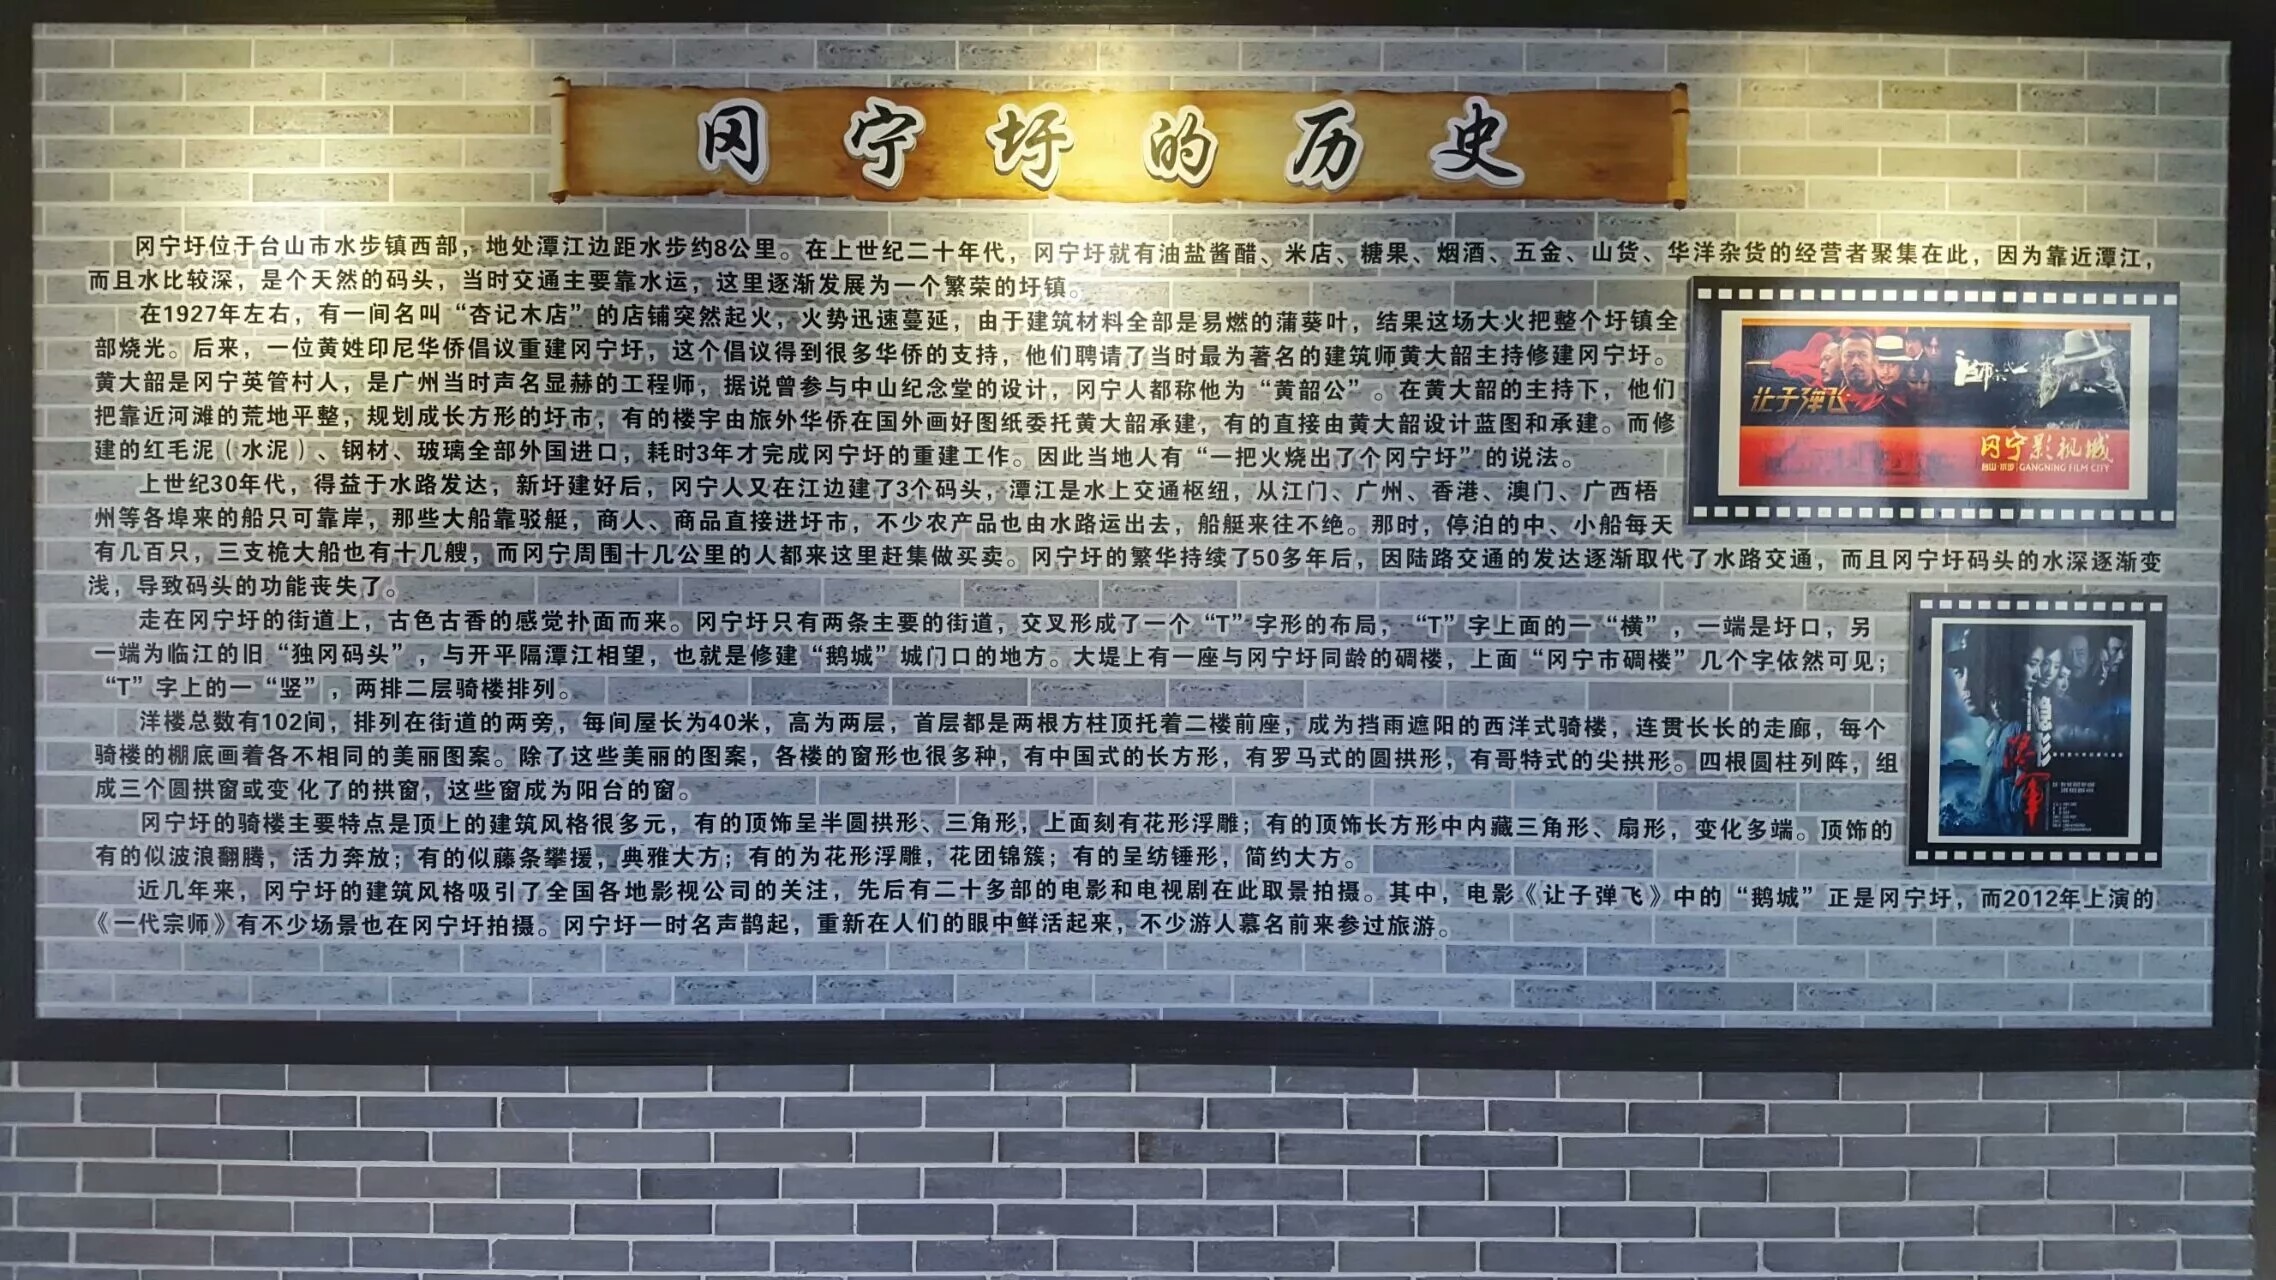 冈宁圩的历史
冈宁圩位于台山市水步镇西部，地处潭江边距水步约8公里。在上世纪二十年代，冈宁圩就有油盐酱醋、米店、糖果、烟酒、五金、山货、华洋杂货的经营者聚集在此，因为靠近潭江，
而且水比较深，是个天然的码头，当时交通主要靠水运，这里逐渐发展为一个繁荣的圩镇。
在1927年左右，有一间名叫“杏记木店”的店铺突然起火，火势迅速蔓延，由于建筑材料全部是易燃的蒲葵叶，结果这场大火把整个圩镇全
部烧光。后来，一位黄姓印尼华侨倡议重建冈宁圩，这个倡议得到很多华侨的支持，他们聘请了当时最为著名的建筑师黄大韶主持修建冈宁圩。
黄大韶是冈宁英管村人，是广州当时声名显赫的工程师，据说曾参与中山纪念堂的设计，冈宁人都称他为“黄韶公”。在黄大韶的主持下，他们
把靠近河滩的荒地平整，规划成长方形的圩市，有的楼宇由旅外华侨在国外画好图纸委托黄大韶承建，有的直接由黄大韶设计蓝图和承建。而修
建的红毛泥（水泥）、钢材、玻璃全部外国进口，耗时3年才完成冈宁圩的重建工作。因此当地人有“一把火烧出了个冈宁圩”的说法。
上世纪30年代，得益于水路发达，新圩建好后，冈宁人又在江边建了3个码头，潭江是水上交通枢纽，从江门、广州、香港、澳门、广西梧
州等各埠来的船只可靠岸，那些大船靠驳艇，商人、商品直接进圩市，不少农产品也由水路运出去，船艇来往不绝。那时，停泊的中、小船每天
有几百只，三支桅大船也有十几艘，而冈宁周围十几公里的人都来这里赶集做买卖。冈宁圩的繁华持续了50多年后，因陆路交通的发达逐渐取代了水路交通，而且冈宁圩码头的水深逐渐变
浅，导致码头的功能丧失了。
走在冈宁圩的街道上，古色古香的感觉扑面而来。冈宁圩只有两条主要的街道，交叉形成了一个“T”字形的布局，“T”字上面的一“横”，一端是圩口，另
一端为临江的旧“独冈码头”，与开平隔潭江相望，也就是修建“鹅城”城门口的地方。大堤上有一座与冈宁圩同龄的碉楼，上面“冈宁市碉楼”几个字依然可见；
“T”字上的一“竖”，两排二层骑楼排列。
洋楼总数有102间，排列在街道的两旁，每间屋长为40米，高为两层，首层都是两根方柱顶托着二楼前座，成为挡雨遮阳的西洋式骑楼，连贯长长的走廊，每个
骑楼的棚底画着各不相同的美丽图案。除了这些美丽的图案，各楼的窗形也很多种，有中国式的长方形，有罗马式的圆拱形，有哥特式的尖拱形。四根圆柱列阵，组
成三个圆拱窗或变化了的拱窗，这些窗成为阳台的窗。
冈宁圩的骑楼主要特点是顶上的建筑风格很多元，有的顶饰呈半圆拱形、三角形，上面刻有花形浮雕；有的顶饰长方形中内藏三角形、扇形，变化多端。顶饰的
有的似波浪翻腾，活力奔放；有的似藤条攀援，典雅大方；有的为花形浮雕，花团锦簇；有的呈纺锤形，简约大方。
近几年来，冈宁圩的建筑风格吸引了全国各地影视公司的关注，先后有二十多部的电影和电视剧在此取景拍摄。其中，电影《让子弹飞》中的“鹅城”正是冈宁圩，而2012年上演的
《一代宗师》有不少场景也在冈宁圩拍摄。冈宁圩一时名声鹊起，重新在人们的眼中鲜活起来，不少游人慕名前来参过旅游。
让子弹飞
冈宁影视城
台山·水步 GANGNING FILM CITY
将军